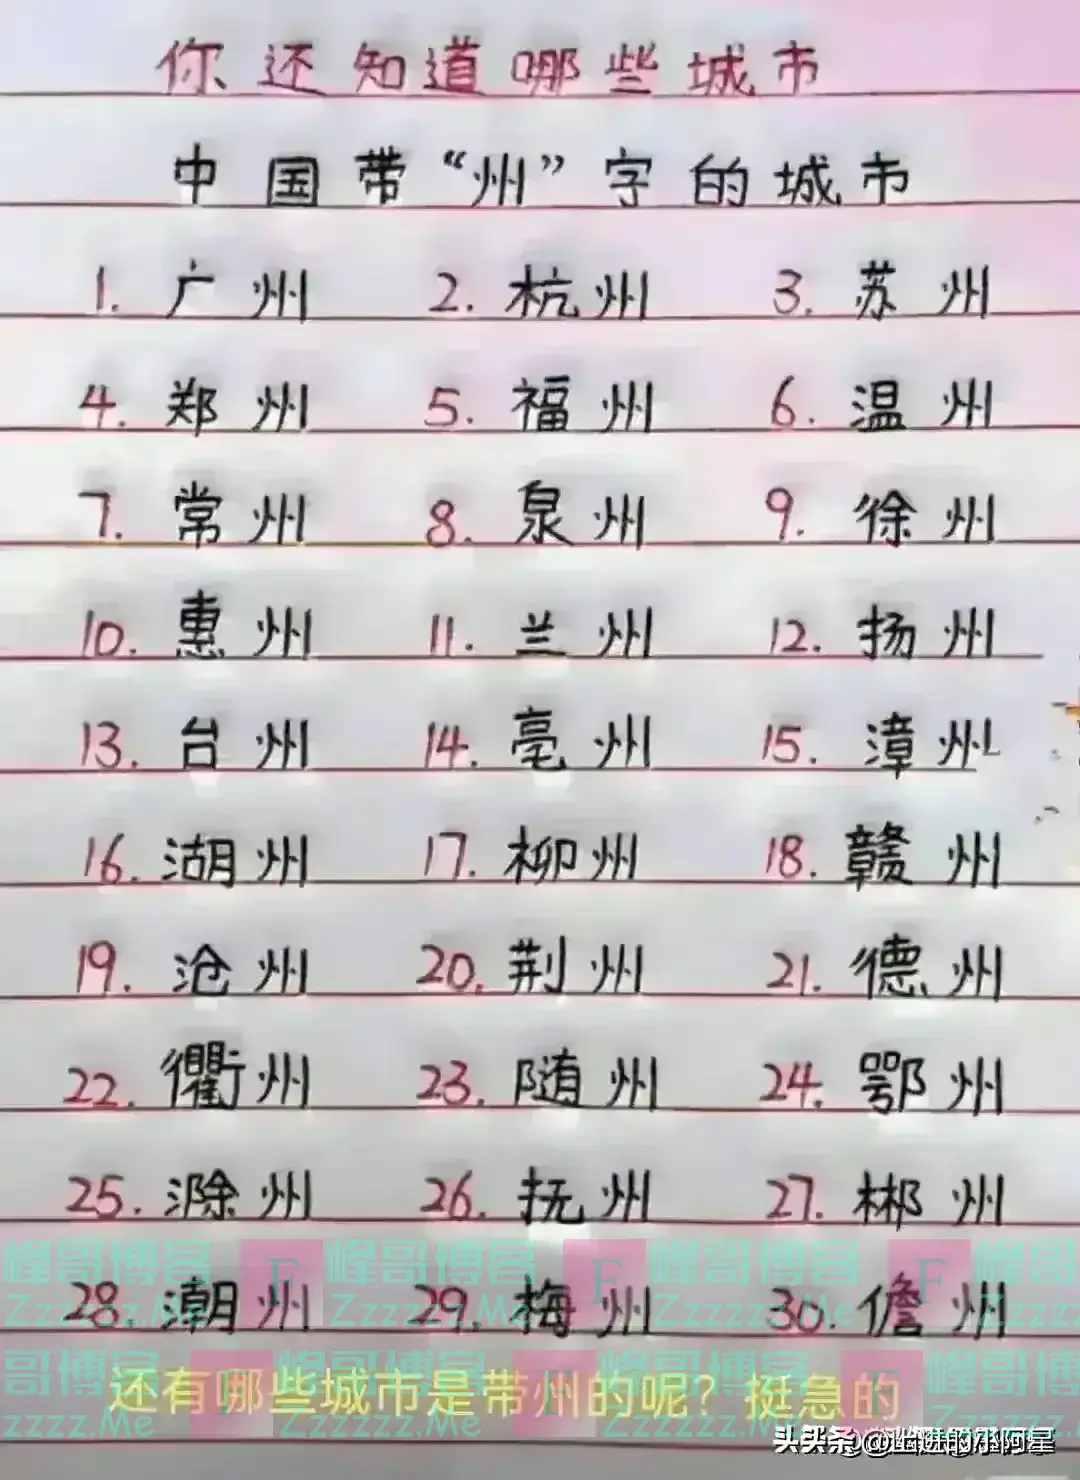 你还知道哪些城市
中国带“州”字的城市
1. 广州 2. 杭州 3. 苏州
4. 郑州 5. 福州 6. 温州
7. 常州 8. 泉州 9. 徐州
10. 惠州 11. 兰州 12. 扬州
13. 台州 14. 亳州 15. 漳州
16. 湖州 17. 柳州 18. 赣州
19. 沧州 20. 荆州 21. 德州
22. 衢州 23. 随州 24. 鄂州
25. 滁州 26. 抚州 27. 郴州
峰哥博客 F 峰哥博客 F 峰哥博客 F 峰哥博客
28. 潮州 29. 梅州 30. 儋州
Zzzzzz.Me Zzzzzz.Me Zzzzzz.Me Zzzzz
哥博客 F 峰哥博客 F 峰哥博客 F 峰哥博
还有哪些城市是带州的呢？挺急的
zzzz.Me Zzzzzz.Me Zzzzzz.Me
头条 @